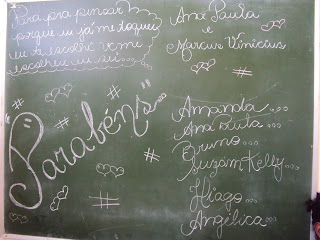 Para pra pensar
porque eu já me toquei
eu te escolhi você me
escolheu eu sei...
Ana Paula
e
Marcus Vinicius
#
"Parabéns"...
#
#
#
Amanda...
Ana Paula...
Bruno...
Suzam Kelly...
Thiago...
Angélica...